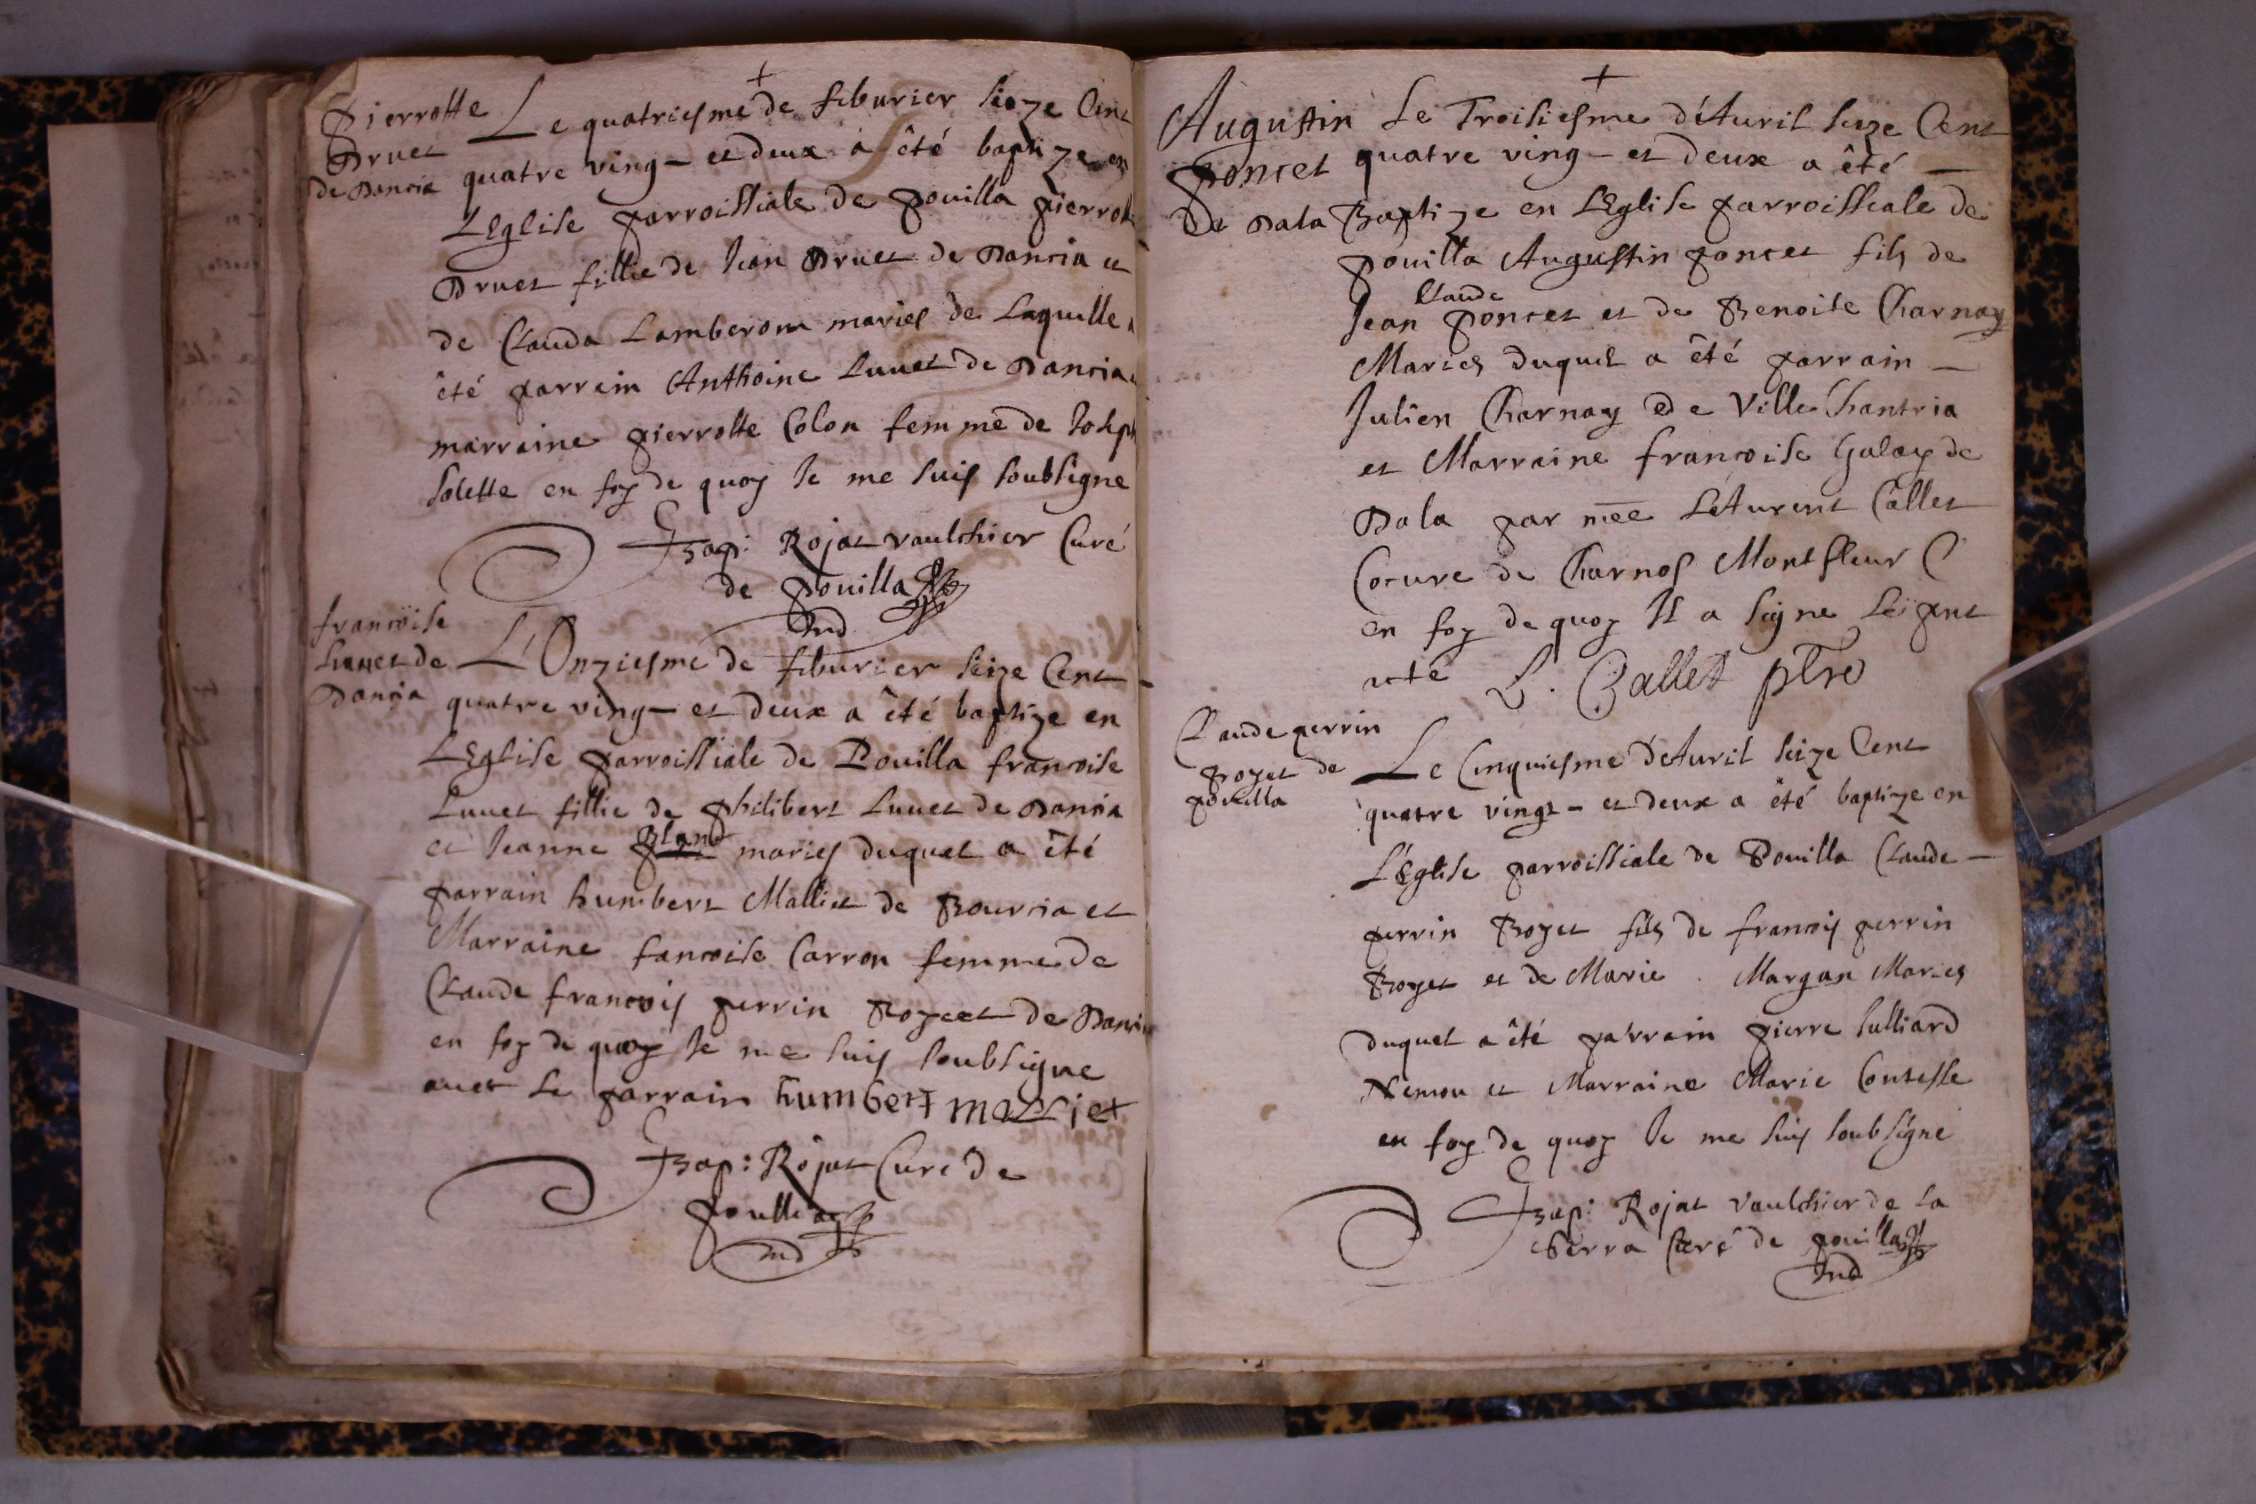 +
Pierrotte
Druet
de Dancia
Le quatriesme de feburier seize Cent
quatre ving - et deux a êté baptize en
LEglise parroissiale de pouilla pierrotte
Druet fillie de Jean Druet de Dancia et
de Clauda Lamberom maries de Laquelle a
êté parrein Anthoine Luuet de Dancia et
marraine pierrotte Colon femme de Joseph
en foy de quoy Je me suis soubsigne
JBap: Rojat vaulchier Curé
de pouilla
françoise
Luuet de
Dancia
L'Onziesme de feburier seize Cent -
quatre ving - et deux a êté baptize en
LEglise parroissiale de Pouilla francoise
Luuet fillie de philibert Luuet de Dancia
et Jeanne maries duquel a êté
parrain humbert Malliet de Bourcia et
Marraine fancoise Carron femme de
Claude francois perrin Boyeet de Dancia
en foy de quoy Je me suis soubsigne
auec le parrain humbert malliet
JBap: Rojat Cure de
poullia
+
Augustin
poncet
De Dala
Le Troisiesme d'Auril seize Cent
quatre ving - et deux a êté -
Baptize en LEglise parroissiale de
pouilla Augustin poncet fils de
Claude
Jean poncet et de Benoite Charnay
Maries duquel a êté parrain -
Julien Charnay de Ville Chantria
et Marraine francoise Galay de
Dala par mee Léturent Callet
Cocure de Charnos Montfleur
en foy de quoy Il a signe Le pnt
acté L. Callet ptre
Claude perrin
Boyet de
pouilla
Le Cinquiesme d'Auril seize Cent
quatre vingt - et deux a êté baptize en
L'Eglise parroissiale de Pouilla Claude -
perrin Boyet fils de francois perrin
Boyet et de Marie Margan Maries
duquel a êté parrain pierre Julliard
Nemou et Marraine Marie Contesse
en foy de quoy Je me suis soubsigné
JBap: Rojat Vaulchier de la
Serra Curé de pouilla